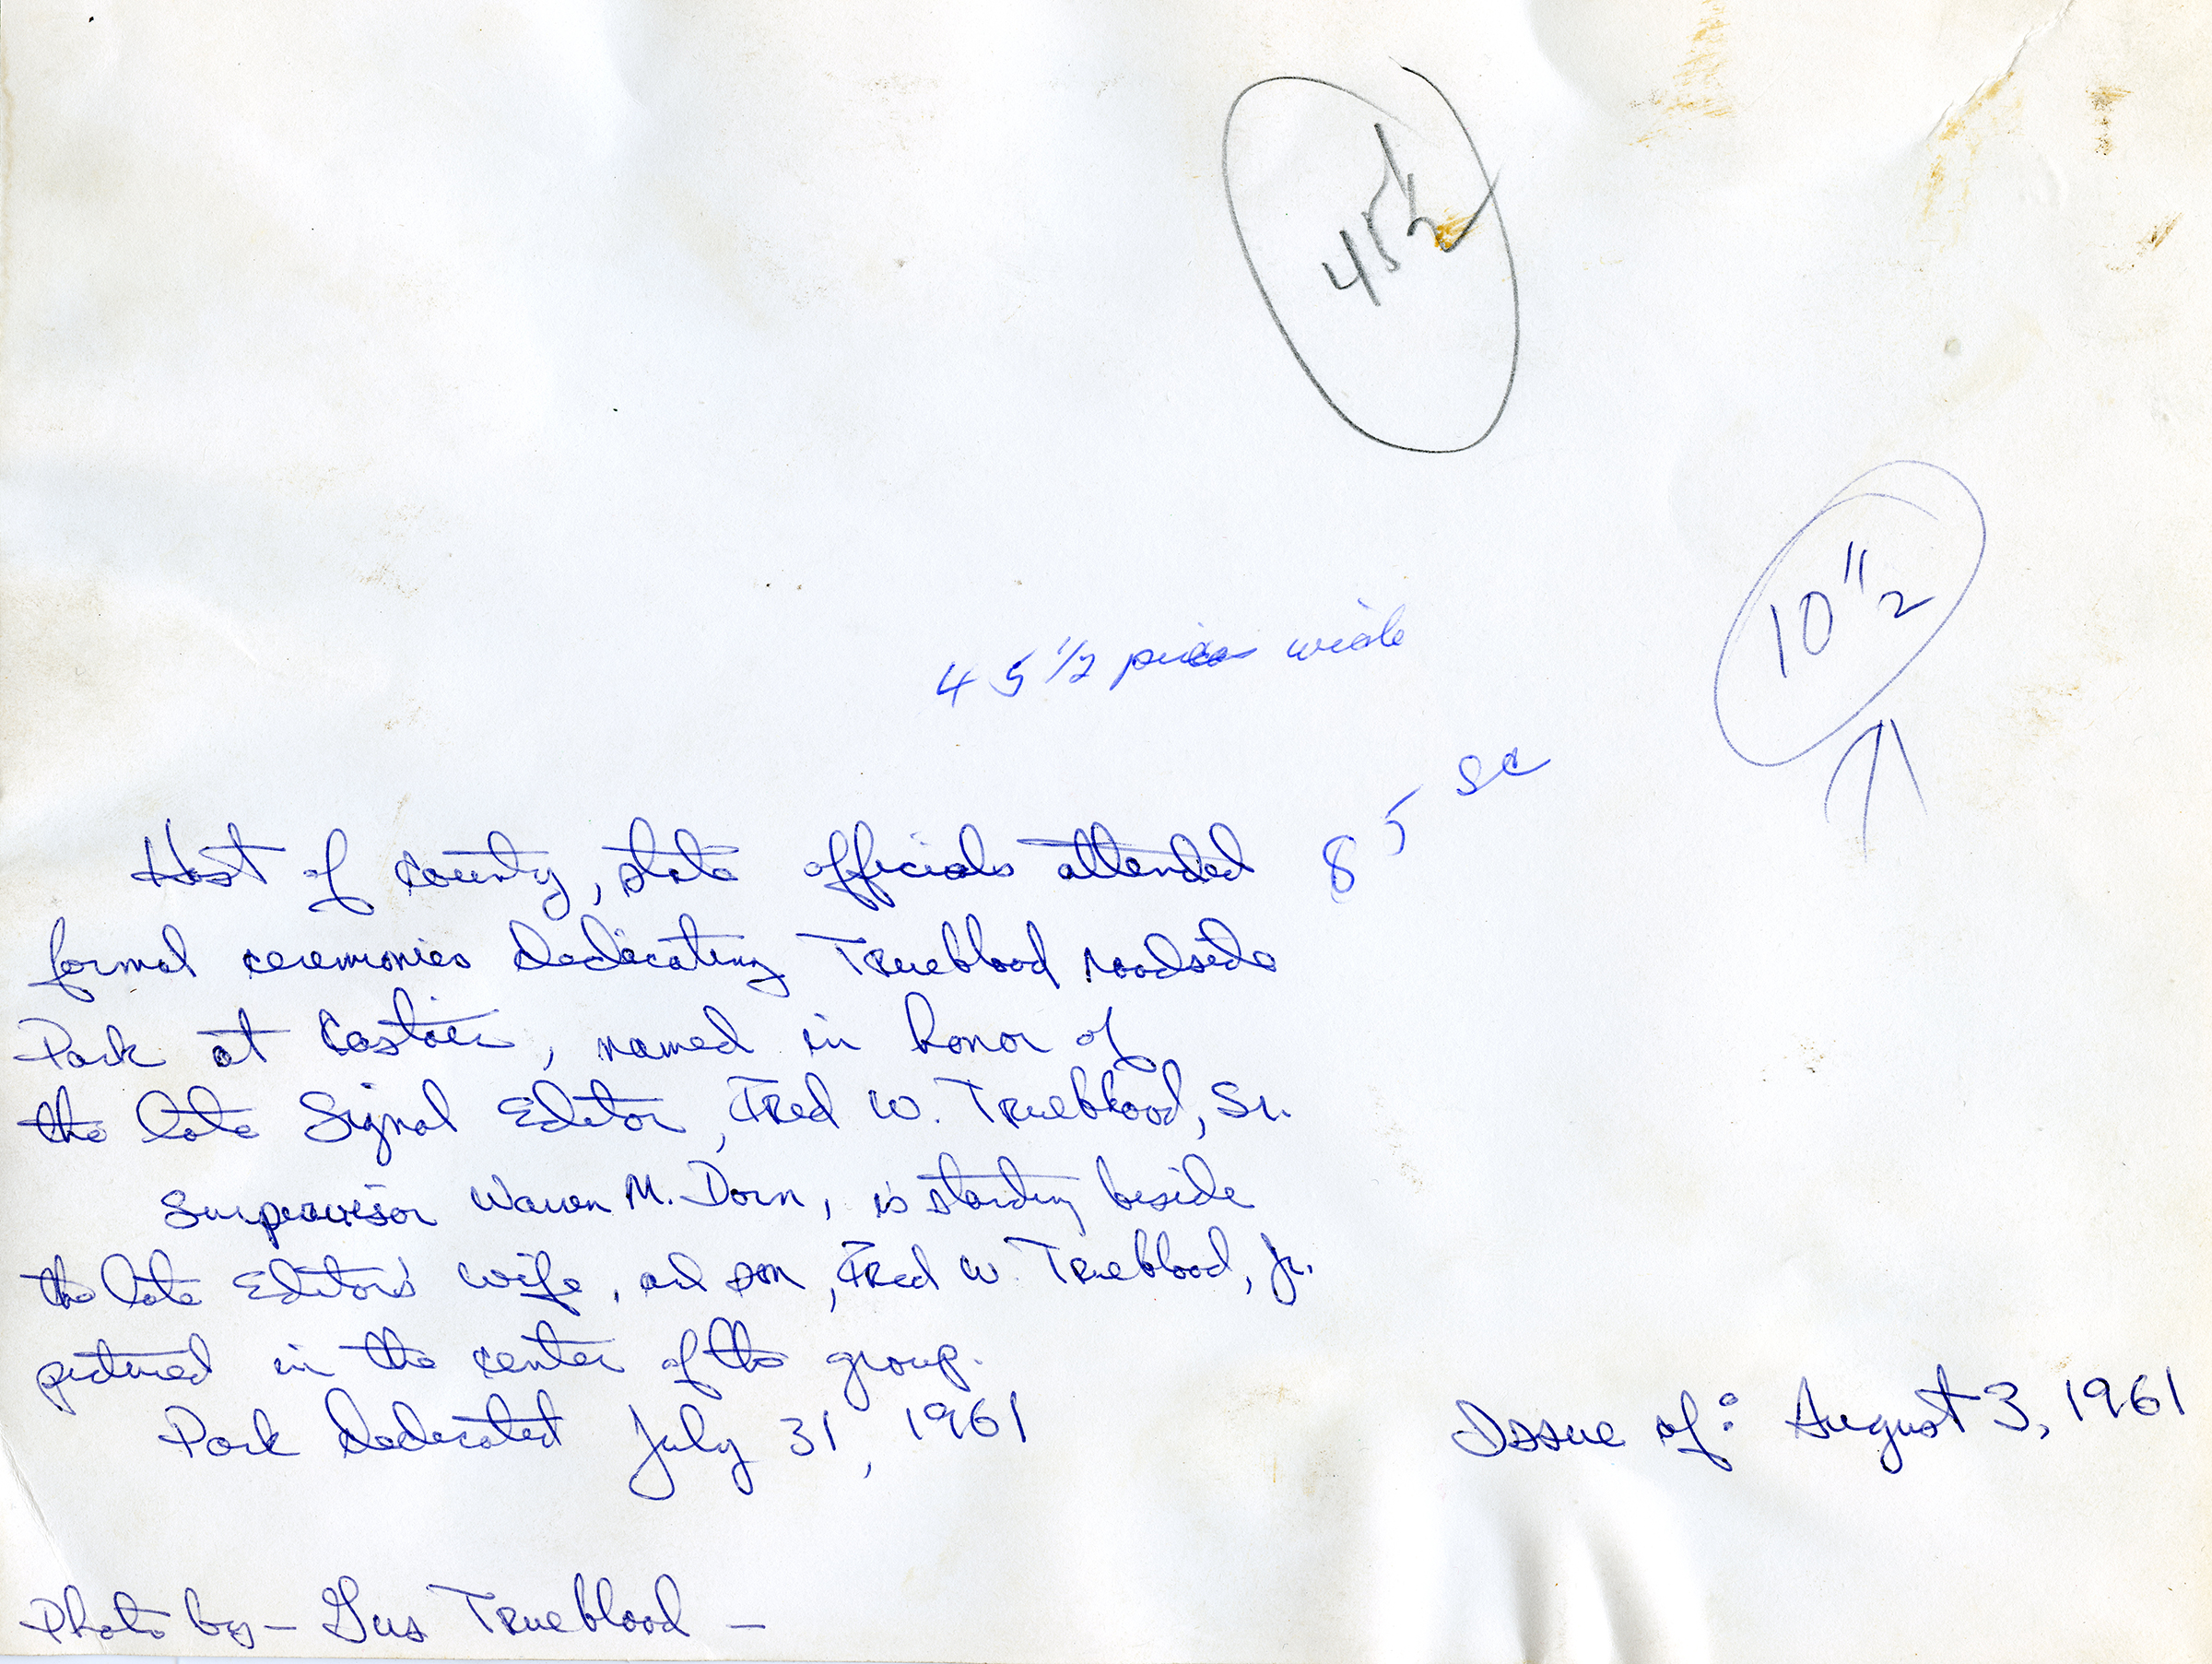 45 1/2
10 1/2
45 1/2 picas wide
85 sc
Host of County, state officials attended
formal ceremonies dedicating Trueblood roadside
Park at Castaic, named in honor of
the late Signal Editor, Fred W. Trueblood, Sr.
Supervisor Warren M. Dorn, is standing beside
the late Editor's wife, and son, Fred W. Trueblood, Jr.
pictured in the center of the group.
Park Dedicated July 31, 1961
Issue of: August 3, 1961
Photo by - Gus Trueblood -